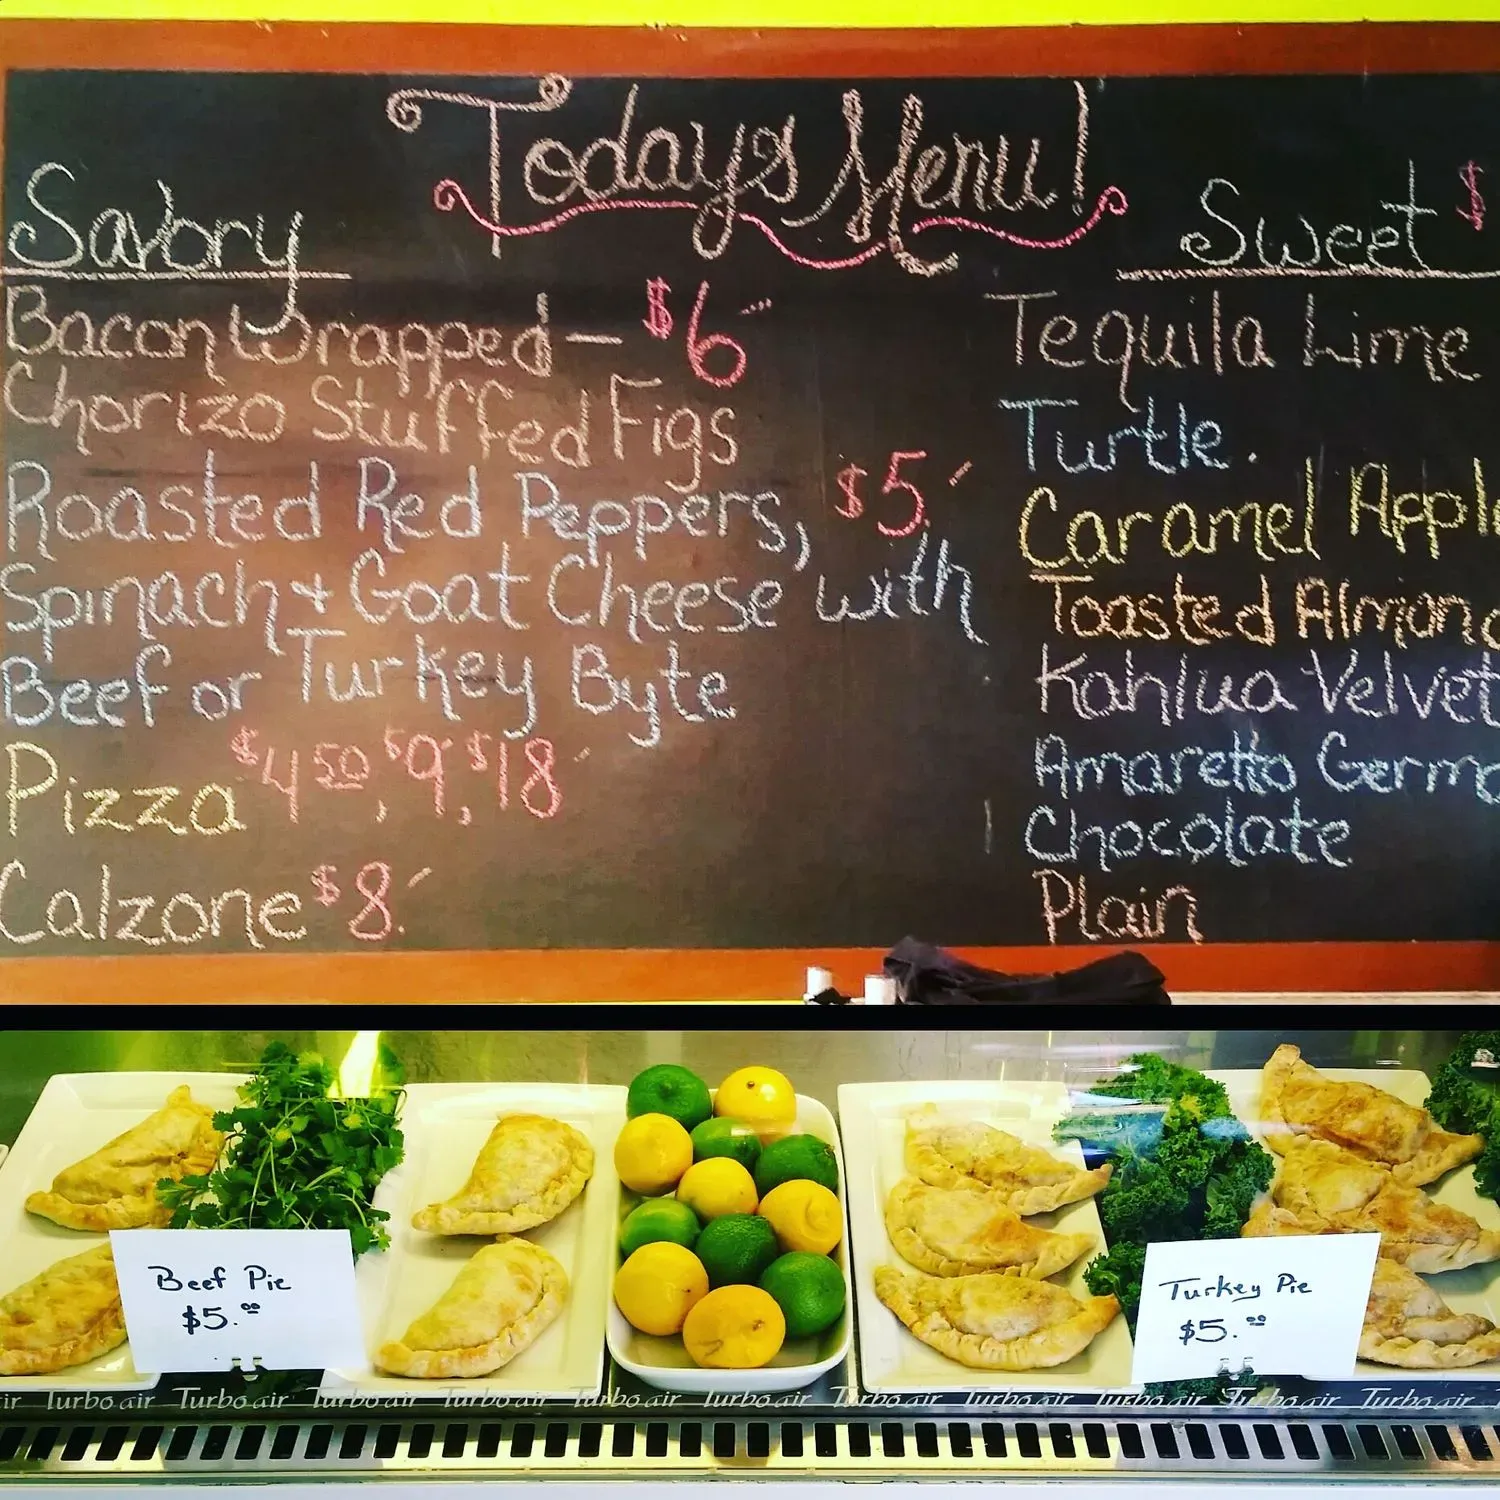 Today's Menu!
Savory
Bacon Wrapped - $6
Chorizo Stuffed Figs
Roasted Red Peppers, $5.
Spinach + Goat Cheese with
Beef or Turkey Byte
Pizza $4 50, $9, $18
Calzone $8.
Sweet $
Tequila Lime
Turtle.
Caramel Apple
Toasted Almond
Kahlua Velvet
Amaretto
Chocolate
Plain
Beef Pie
$5.00
Turkey Pie
$5.00
air Turbo air Turbo air Turbo air Turbo air Turbo air Turbo air Turbo air Turbo air Turbo air Turbo air Turbo air